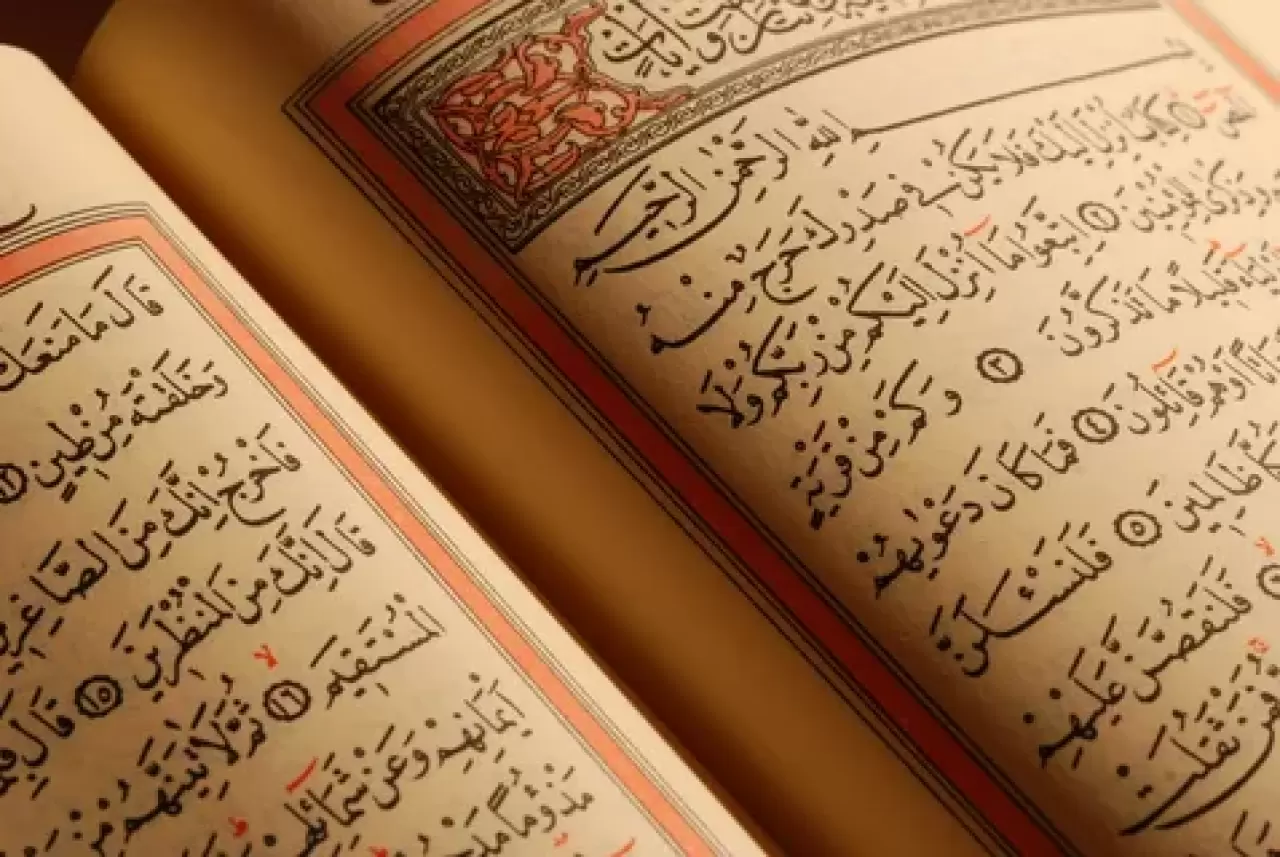 بِسْمِ اللّٰهِ الرَّحْمٰنِ الرَّحِيمِ
الٓمٓصٓ ١ كِتَابٌ اُنْزِلَ اِلَيْكَ فَلَا يَكُنْ فِي صَدْرِكَ حَرَجٌ مِنْهُ
وَذِكْرٰى لِلْمُؤْمِنِينَ ٢ اِتَّبِعُوا مَٓا اُنْزِلَ اِلَيْكُمْ مِنْ رَبِّكُمْ وَلَا
قَلِيلًا مَا تَذَكَّرُونَ ٣ وَكَمْ مِنْ قَرْيَةٍ
اَوْ هُمْ قَٓائِلُونَ ٤ فَمَا كَانَ دَعْوٰيهُمْ
ظَالِمِينَ ٥ فَلَنَسْـَٔلَنَّ
فَلَنَقُصَّنَّ عَلَيْهِمْ
فَمَنْ ثَقُلَتْ
قَالَ مَا مَنَعَكَ
وَخَلَقْتَهُ مِنْ طِينٍ ١٢
فَاخْرُجْ اِنَّكَ مِنَ الصَّاغِرِينَ
قَالَ اِنَّكَ مِنَ الْمُنْظَرِينَ ١٥ قَالَ
الْمُسْتَقِيمَ ١٦ ثُمَّ لَاٰتِيَنَّهُمْ مِنْ
اَيْمَانِهِمْ وَعَنْ شَمَٓائِلِهِمْ
مَذْؤُمًا